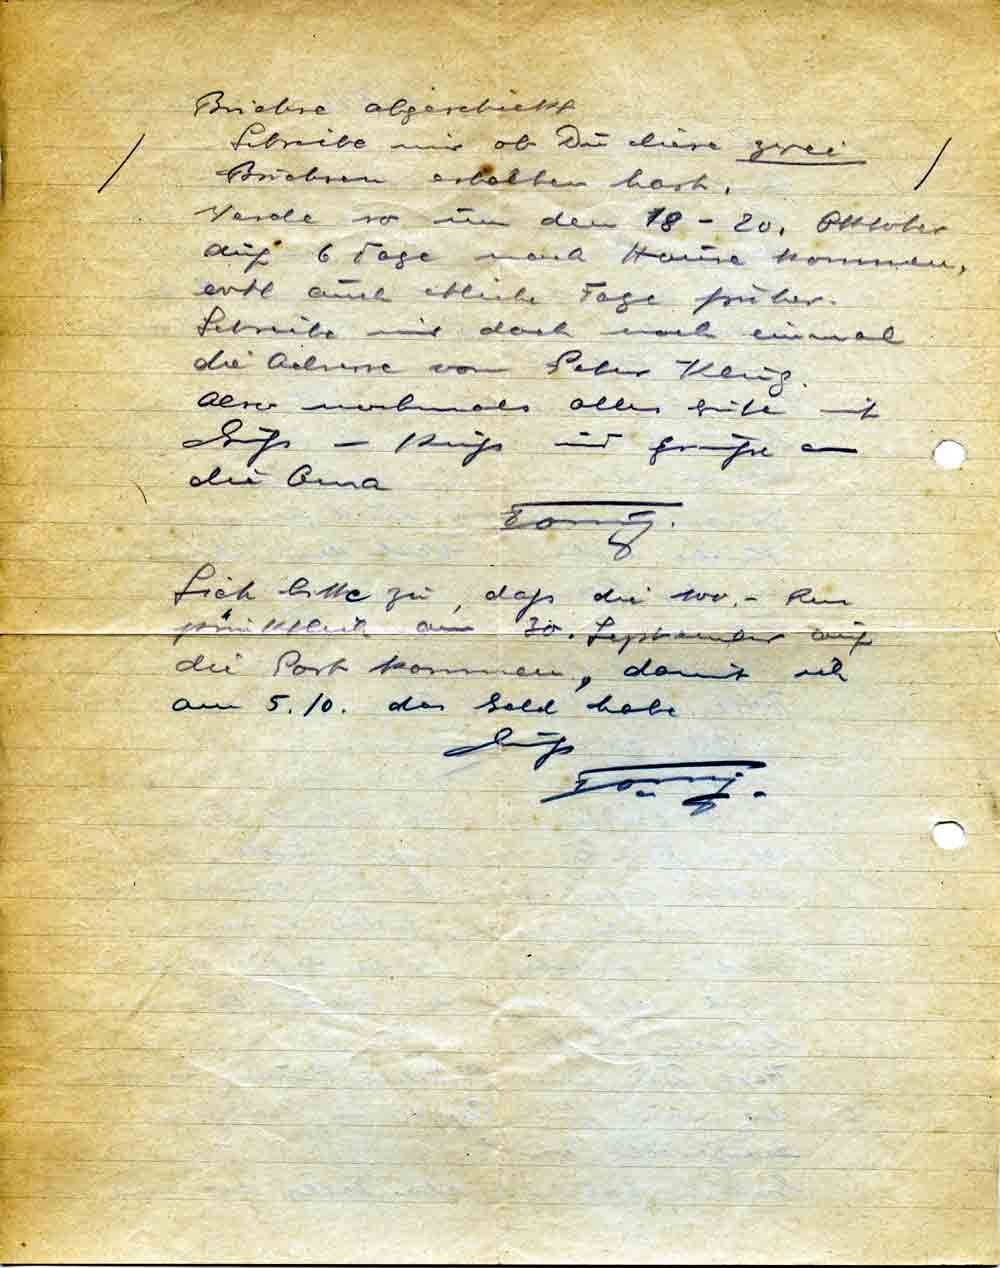 Büchse abgeschickt
Schreibe mir ob Du diese zwei
Büchsen erhalten hast.
Werde so um den 18 – 20. Oktober
auf 6 Tage nach Hause kommen,
evtl auch etliche Tage früher.
Schreibe mir doch noch einmal
die Adresse von Peter Klug.
Also nochmals alles Gute mit
Gruß – Kuß und Grüße an
die Oma
Tony.
Sieh bitte zu, daß die 100.-
pünktlich am 30. September auf
die Post kommen, damit ich
am 5.10. das Geld habe
Gruß
Tony.